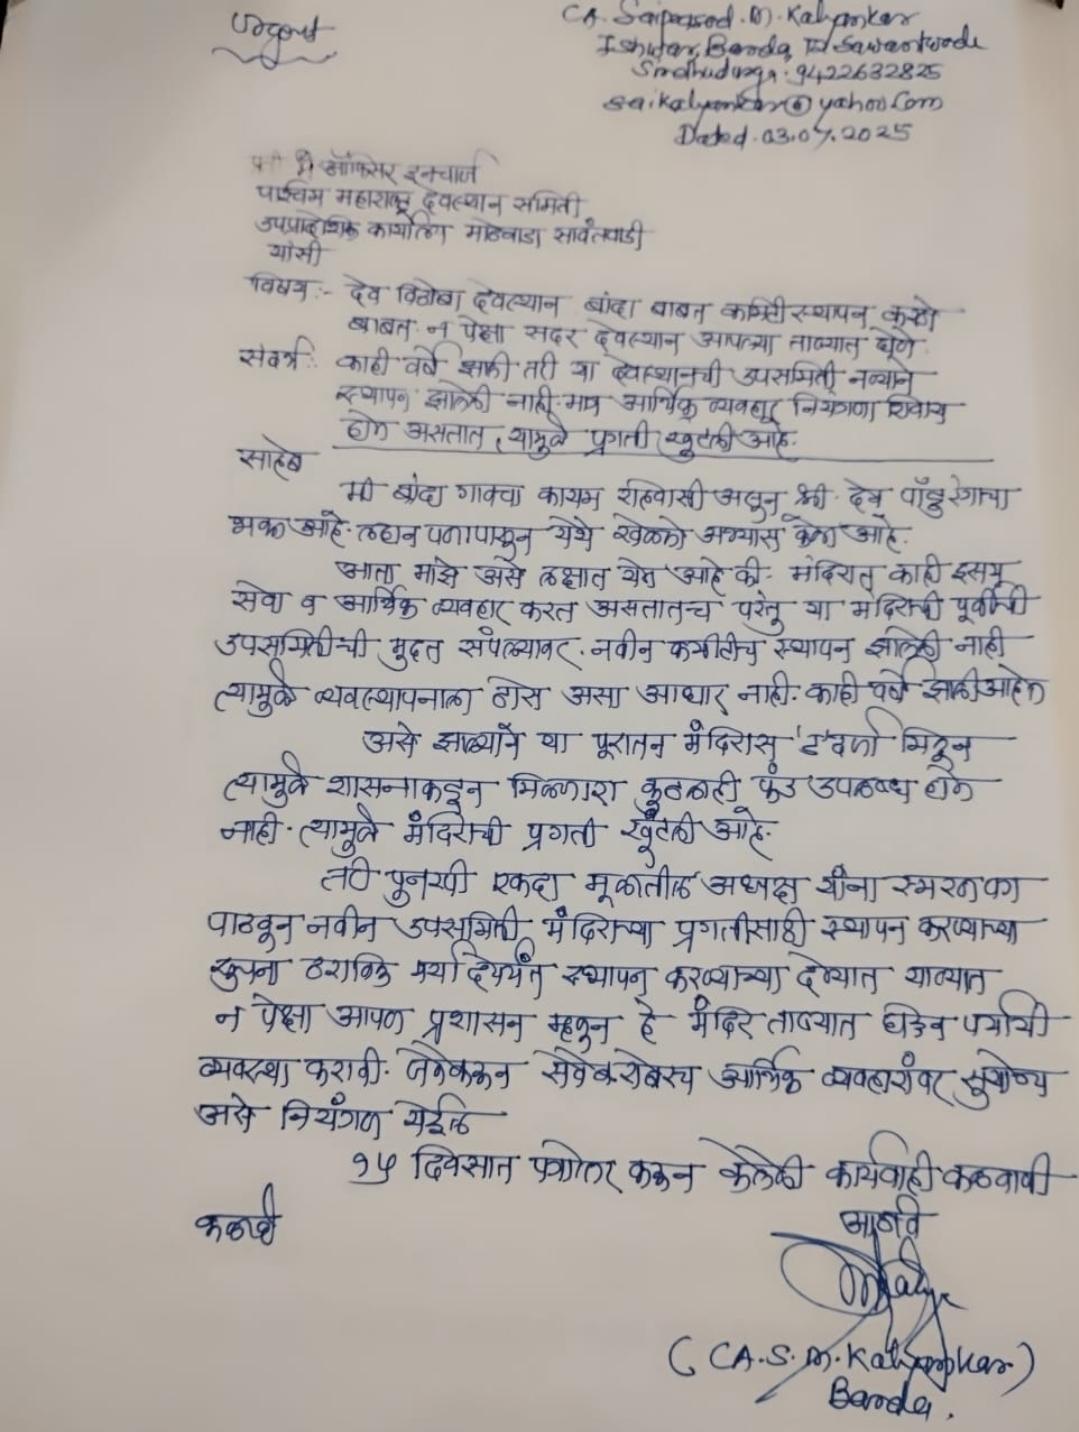 CA. Saiprasad. M. Kalyankar
Ishwar, Banda, Tal Sawantwadi
Sindhudurga: 9422632825
saikalyankar@yahoo.com
Dated. 03.07.2025
ऑफिसर इनचार्ज
पश्चिम महाराष्ट्र देवस्थान समिती
उपप्रादेशिक कार्यालय माठेवाडा सावंतवाडी
यांसी
विषय:- देव विठोबा देवस्थान बांदा बाबत कमिटी स्थापन करणे
बाबत न पेक्षा सदर देवस्थान आपल्या ताब्यात घेणे.
संदर्भ: काही वर्षे झाली तरी या देवस्थानची उपसमिती नव्याने
स्थापन झालेली नाही. मात्र आर्थिक व्यवहार नियंत्रणा शिवाय
होत असतात, त्यामुळे प्रगती खुंटली आहे.
साहेब
मी बांदा गावचा कायम रहिवासी असून श्री. देव पांडुरंगाचा
भक्त आहे. लहान पणापासून येथे खेळलो अभ्यास केला आहे.
आता माझे असे लक्षात येत आहे की. मंदिरात काही इसम
सेवा व आर्थिक व्यवहार करत असतातच परंतु या मंदिराची पूर्वीची
उपसमितीची मुदत संपल्यावर. नवीन कमीटीच स्थापन झालेली नाही
त्यामुळे व्यवस्थापनाला ठोस असा आधार नाही. काही वर्षे झाली आहेत
असे झाल्याने या पूरातन मंदिरास 'ट' वर्ग मिळून
त्यामुळे शासनाकडून मिळणारा कुठलाही फंड उपलब्ध होत
नाही. त्यामुळे मंदिराची प्रगती खुंटली आहे.
तरी पुनश्च एकदा मूळातील अध्यक्ष यांना स्मरणका
पाठवून नवीन उपसमिती मंदिराच्या प्रगतीसाठी स्थापन करण्याच्या
सूचना ठराविक मर्यादेपर्यंत स्थापन करण्याच्या देण्यात याव्यात
न पेक्षा आपण प्रशासन म्हणून हे मंदिर ताब्यात घेऊन पर्यायी
व्यवस्था करावी. जेणेकरून सेवेबरोबरच आर्थिक व्यवहारांवर सुयोग्य
असे नियंत्रण येईल
१५ दिवसात पत्रोत्तर करून केलेली कार्यवाही कळवावी
कळावे
आपला
(CA. S. M. Kalyankar)
Banda.